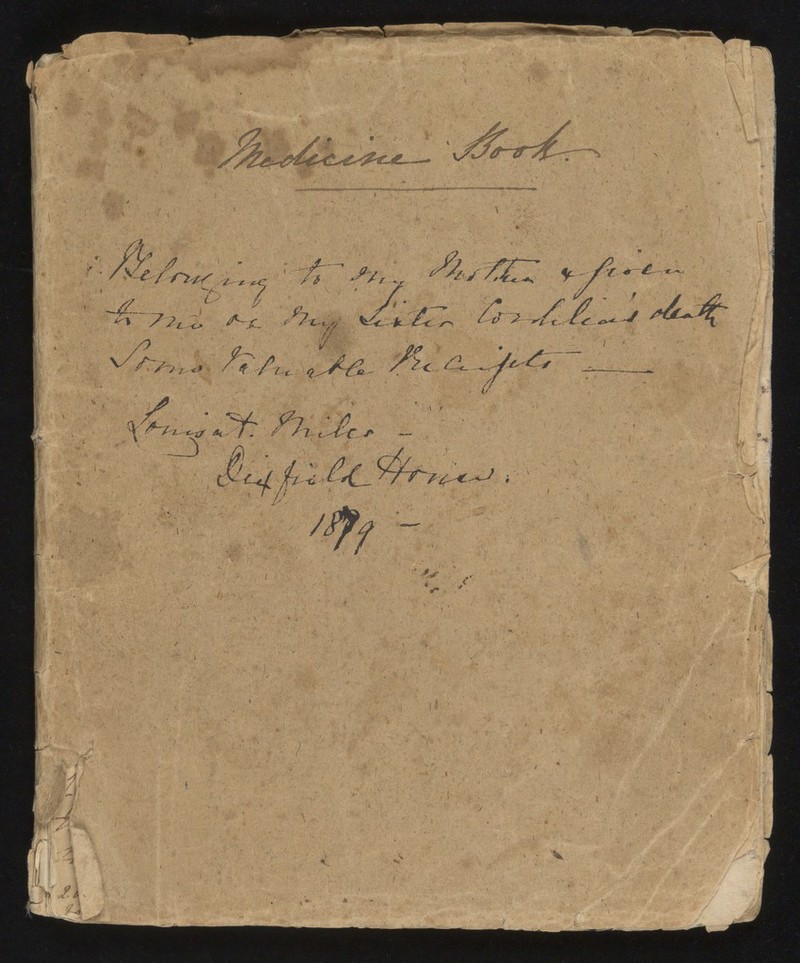 Medicine Book.
Belonging to my Mother & given
to me on my Sister Cordelia's death
Some Valuable Receipts —
Louisa t. Miles —
Dixfield House.
1879 —